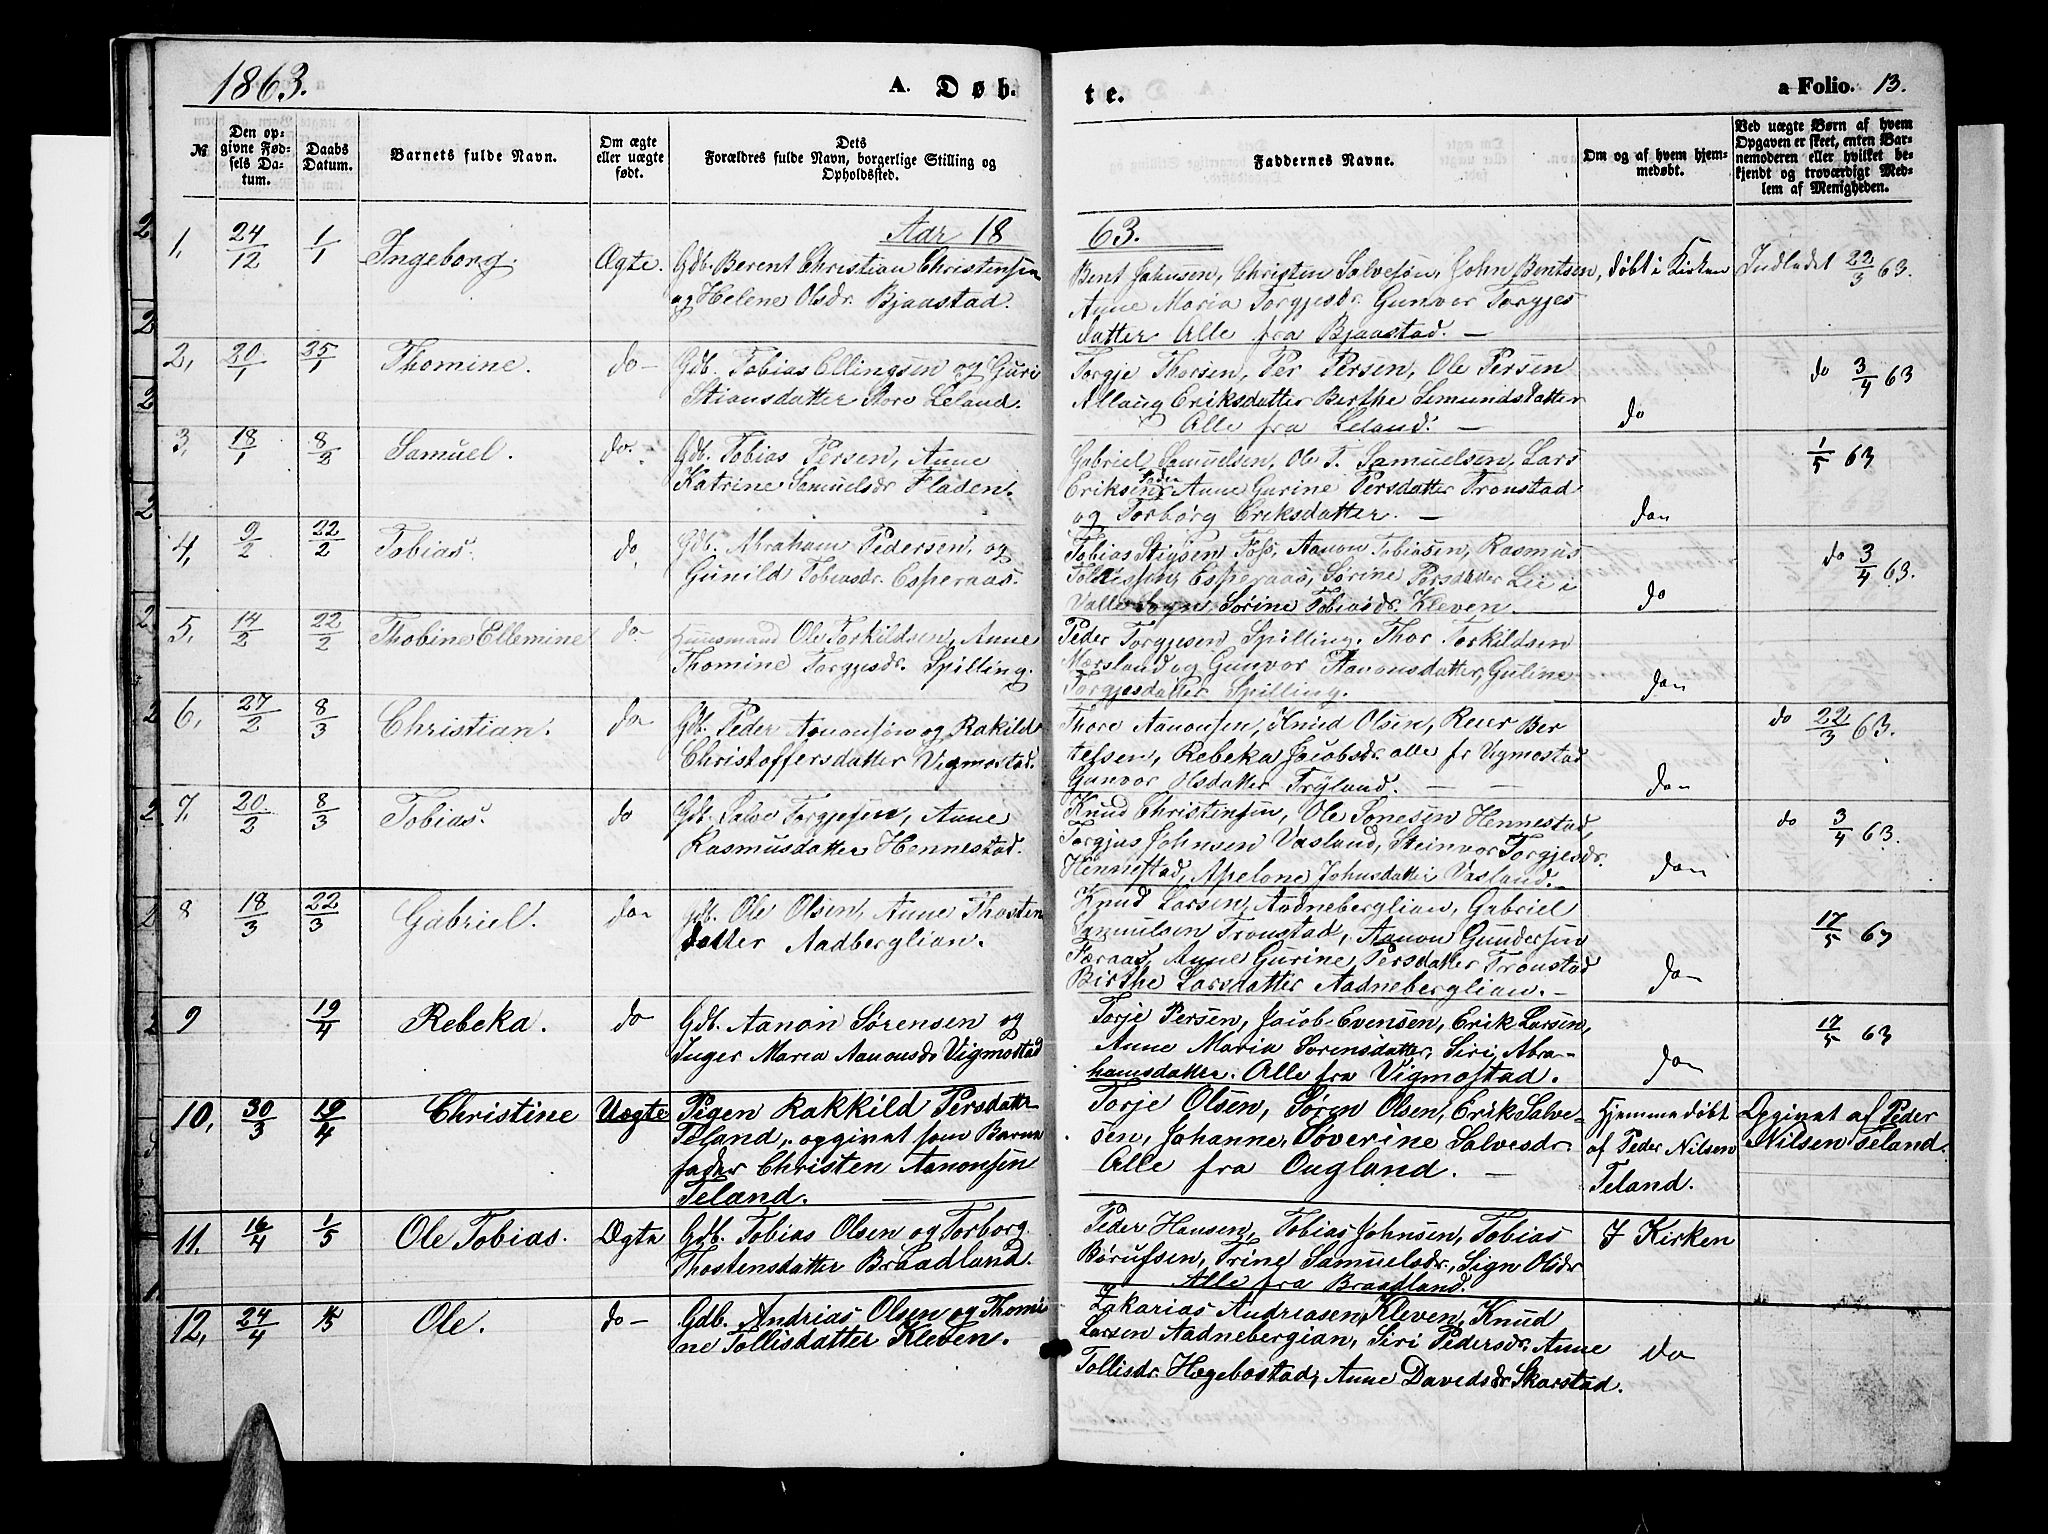 1863.
A. Døb-
te.
a Folio. 13.
№
Den op-
givne Fød-
sels Da-
tum.
Daabs
Datum.
Barnets fulde Navn.
Om ægte
eller uægte
født.
Dets
Forældres fulde Navn, borgerlige Stilling og
Opholdssted.
Faddernes Navne.
Om og af hvem hjem-
medøbt.
Ved uægte Børn af hvem
Opgaven er skeet, enten Bar-
nemoderen eller hvilket be-
kjendt og troværdigt Med-
lem af Menigheden.
Aar 18
63.
1, 24/12 1/1 Ingeborg. Ægte. Gdb. Berent Christian Christensen
og Helene Olsdr. Bjaastad.
Bent Johnsen, Christen Salvesøn, John Bentsen,
Anne Maria Torgjesdr. Gunvor Torgjes
datter Alle fra Bjaastad. —
døbt i Kirken
Indledet 22/3 63.
2, 20/1 25/1 Thomine. do — Gdb. Tobias Ellingsen og Guri
Stiansdatter Store Leland.
Torgje Thorsen, Per Persen, Ole Persen
Allaug Eriksdatter Berthe Simundsdatter
Alle fra Leland. —
do
do 3/4 63
3, 18/1 8/2 Samuel. do. Gdb. Tobias Persen, Anne
Katrine Samuelsdr Fladen.
Gabriel Samuelsen, Ole T. Samuelsen, Lars
Eriksen, Anne Gurine Persdatter Tronstad
og Torborg Eriksdatter. —
do
1/5 63
4, 9/2 22/2 Tobias. do, Gdb. Abraham Pedersen, og
Gunild Tobiasdr. Esperaas.
Tobias Stigsen Foss, Aanon Tobiasen, Rasmus
Esperaas, Sørine Persdatter Lie i
Valle Sogn Sørine Tobiasdr. Kleven.
do
do 3/4 63.
5, 14/2 22/2 Thobine Ellemine do Huusmand Ole Torkildsen, Anne
Thomine Torgjesdr. Spilling.
Peder Torgjesen Spilling, Thor Torkildsen
Mørsland og Gunvor Aanonsdatter, Guline
Torgjesdatter Spilling.
do
6, 27/2 8/3 Christian. do Gdb. Peder Aanonsøn og Rakild
Christoffersdatter Vigmostad.
Thore Aanonsen, Knud Olsen, Reier Ber
telsen, Rebeka Jacobsdr. alle fr Vigmostad
Gunvor Olsdatter Tryland. — —
do
do 22/3 63.
7, 20/2 8/3 Tobias. do Gdb. Salve Torgjesen, Anne
Rasmusdatter Hennestad.
Knud Christensen, Ole Tonesen Hennestad,
Torgjus Johnsen Vasland, Steinvor Torgjesdr.
Hennestad, Apelone Johnsdatter Vasland. —
do
do 3/4 63.
8 18/3 22/3 Gabriel. do Gdb. Ole Olsen, Anne Thosten
datter Aadberglian.
Knud Larsen, Aadneberglian, Gabriel
Samuelsen Tronstad, Aanon Gundersen
Færaas, Anne Gurine Persdatter Tronstad
Birthe Larsdatter Aadneberglian. —
do
17/5 63
9 19/4 Rebeka. do Gdb. Aanon Sørensen og
Inger Maria Aanonsdr Vigmostad
Torje Persen, Jacob Evensen, Erik Larsen,
Anne Maria Sorensdatter, Siri Abra-
hamsdatter. Alle fra Vigmostad.
do
17/5 63
10, 30/3 19/4 Christine Uægte Pigen Rakkild Persdatter
Teland, opgivet som Barne
fader Christen Aanonsen
Teland.
Torje Olsen, Søren Olsen, Erik Salve-
sen, Johanne, Søverine Salvesdr.
Alle fra Ougland. —
Hjemmedøbt
af Peder Nilsen
Teland.
Opgivet af Peder
Nilsen Teland.
11. 16/4 1/5 Ole Tobias. Ægte Gdb. Tobias Olsen og Torborg
Thostensdatter Braadland.
Peder Hansen, Tobias Johnsen, Tobias
Børufsen, Trine Samuelsdr., Sign Olsdr
Alle fra Braadland.
I Kirken
12, 24/4 1/5 Ole. do — Gdb. Andrias Olsen og Thomi
ne Tollisdatter Kleven.
Zakarias Andreasen Kleven, Knud
Larsen Aadnebergian, Siri Pedersdr, Anne
Tollisdr. Hægebostad, Anne Davidsdr Skarstad.
do